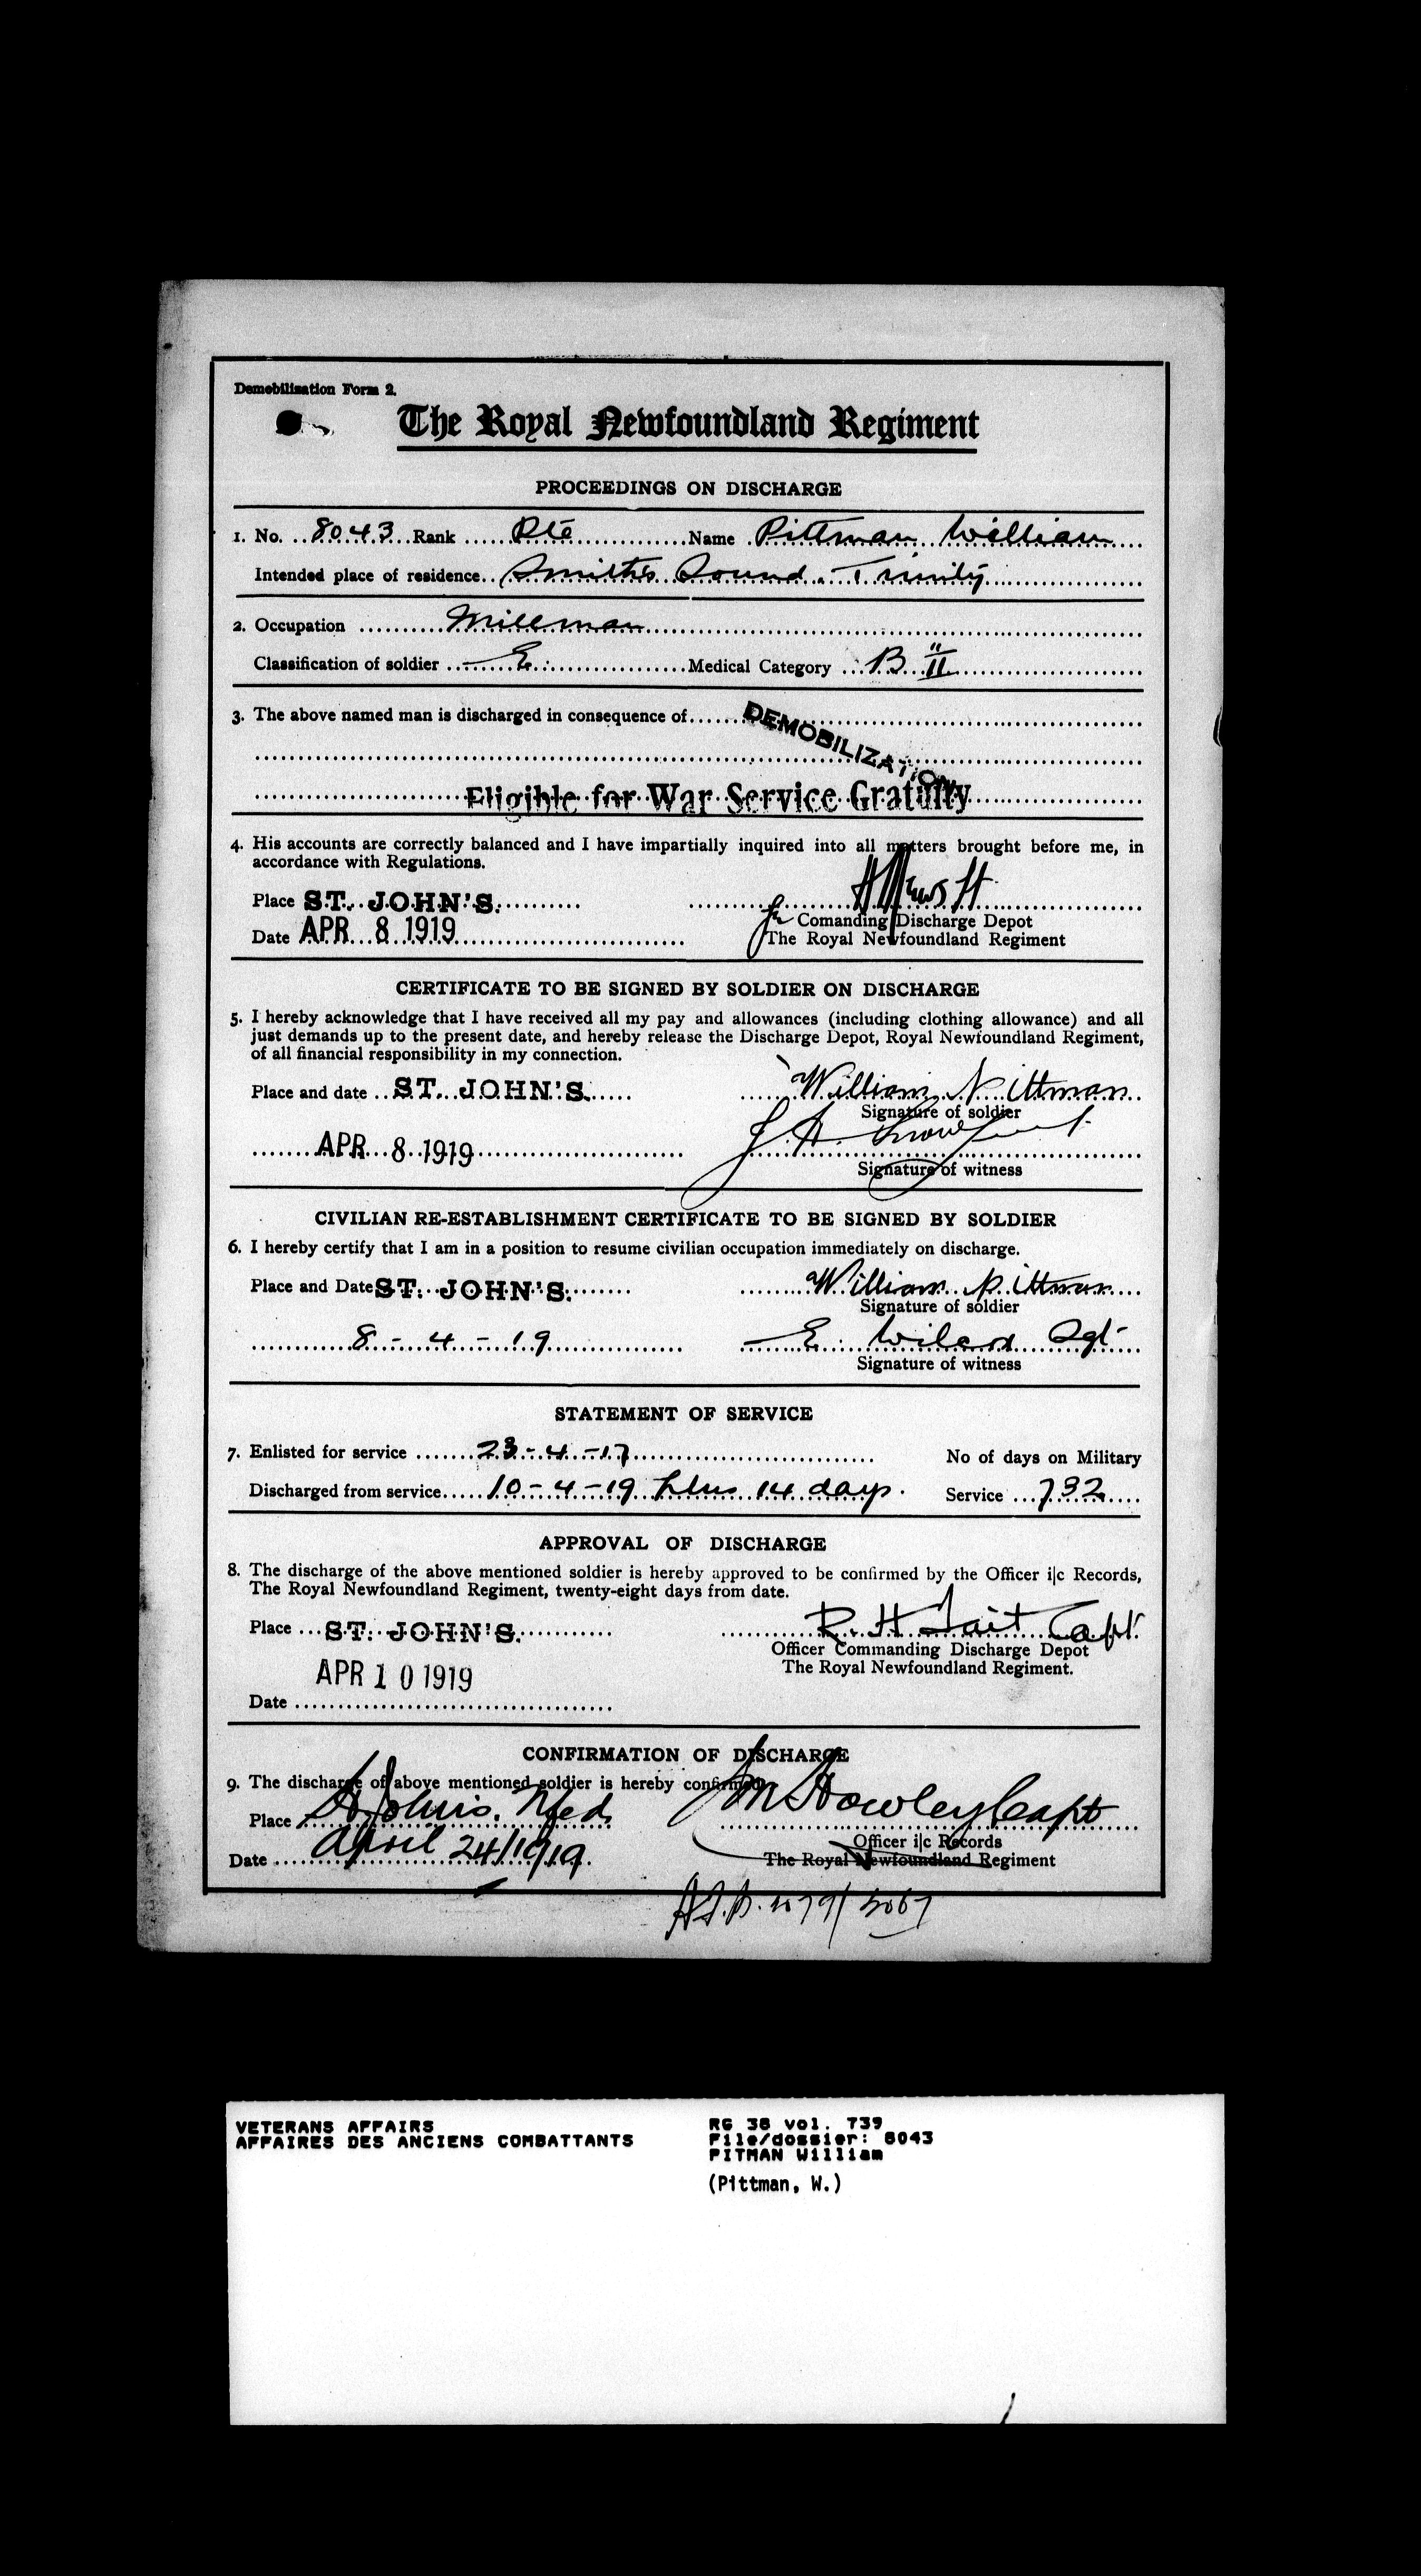 Demobilisation Form 2.
The Royal Newfoundland Regiment
PROCEEDINGS ON DISCHARGE
1. No. 8043 Rank Pte Name Pittman William
Intended place of residence Smith's Sound. Trinity
2. Occupation Millman
Classification of soldier E. Medical Category B II
3. The above named man is discharged in consequence of DEMOBILIZATION
Eligible for War Service Gratuity
4. His accounts are correctly balanced and I have impartially inquired into all matters brought before me, in
accordance with Regulations.
Place ST. JOHN'S.
for Comanding Discharge Depot
Date APR 8 1919
The Royal Newfoundland Regiment
CERTIFICATE TO BE SIGNED BY SOLDIER ON DISCHARGE
5. I hereby acknowledge that I have received all my pay and allowances (including clothing allowance) and all
just demands up to the present date, and hereby release the Discharge Depot, Royal Newfoundland Regiment,
of all financial responsibility in my connection.
Place and date ST. JOHN'S. William Pittman
Signature of soldier
APR 8 1919
Signature of witness
CIVILIAN RE-ESTABLISHMENT CERTIFICATE TO BE SIGNED BY SOLDIER
6. I hereby certify that I am in a position to resume civilian occupation immediately on discharge.
Place and Date ST. JOHN'S. William Pittman
Signature of soldier
8 - 4 - 19 E. Wilcox Sgt
Signature of witness
STATEMENT OF SERVICE
7. Enlisted for service 23-4-17 No of days on Military
Discharged from service 10-4-19 Plus 14 days. Service 732
APPROVAL OF DISCHARGE
8. The discharge of the above mentioned soldier is hereby approved to be confirmed by the Officer i|c Records,
The Royal Newfoundland Regiment, twenty-eight days from date.
Place ST. JOHN'S. R. H. Tait Capt.
Officer Commanding Discharge Depot
The Royal Newfoundland Regiment.
APR 10 1919
Date
CONFIRMATION OF DISCHARGE
9. The discharge of above mentioned soldier is hereby confirmed
Place St Johns. Nfld. M Howley Capt
Officer i|c Records
Date April 24/1919 The Royal Newfoundland Regiment
VETERANS AFFAIRS
AFFAIRES DES ANCIENS COMBATTANTS
RG 38 vol. 739
File/dossier: 8043
PITMAN William
(Pittman, W.)